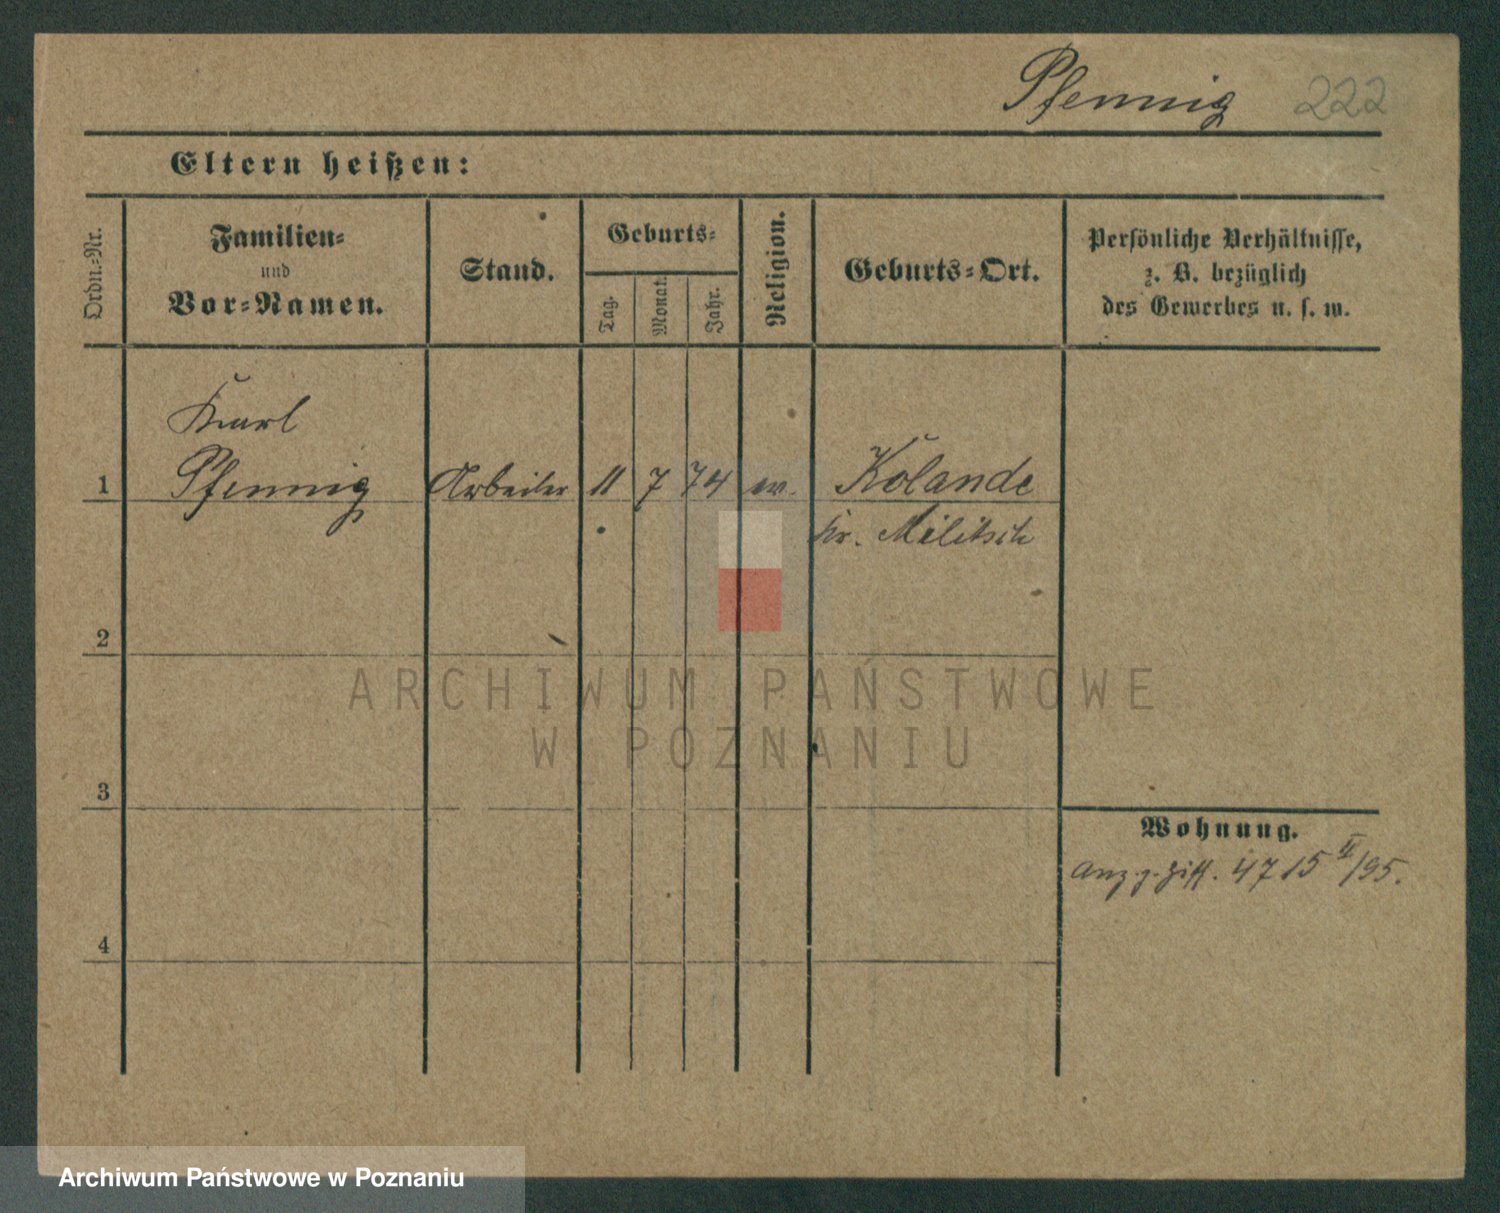 Pfennig 222
Eltern heißen:
Ordn.-Nr.
Familien-
und
Vor-Namen.
Stand.
Geburts-
Tag.
Monat.
Jahr.
Religion.
Geburts-Ort.
Persönliche Verhältnisse,
z. B. bezüglich
des Gewerbes u. s. w.
Karl
1 Pfennig Arbeiter 11 7 74 ev. Kolande
Kr. Militsch
2
ARCHIWUM PAŃSTWOWE
W POZNANIU
3
Wohnung.
4715 II/95.
4
Archiwum Państwowe w Poznaniu